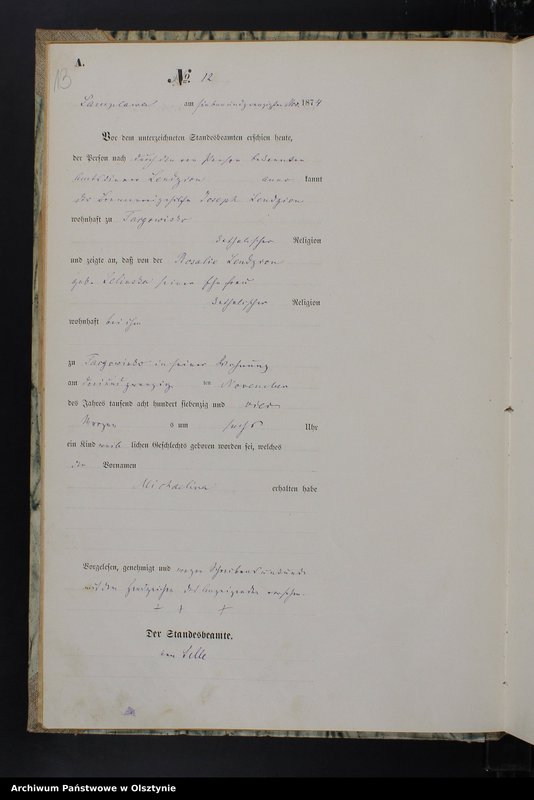 A.
13
No. 12
am siebenundzwanzigsten Nov. 1874
Vor dem unterzeichneten Standesbeamten erschien heute,
der Person nach durch den von Person bekannten
Amtsdiener Lendzion anno kannt
der Joseph Lendzion
wohnhaft zu Targowisko
katholischer Religion
und zeigte an, daß von der Rosalie Lendzion
geb. Zelinska seiner Ehefrau
katholischer Religion
wohnhaft bei ihm
zu Targowisko in seiner Wohnung
am dreiundzwanzig ten November
des Jahres tausend acht hundert siebenzig und vier
Morgens um sechs Uhr
ein Kind weib lichen Geschlechts geboren worden sei, welches
den Vornamen
Michalina erhalten habe
Vorgelesen, genehmigt und wegen Schreibensunkunde
mit dem Handzeichen des Anzeigenden versehen
+ + +
Der Standesbeamte.
von Selle
Archiwum Państwowe w Olsztynie